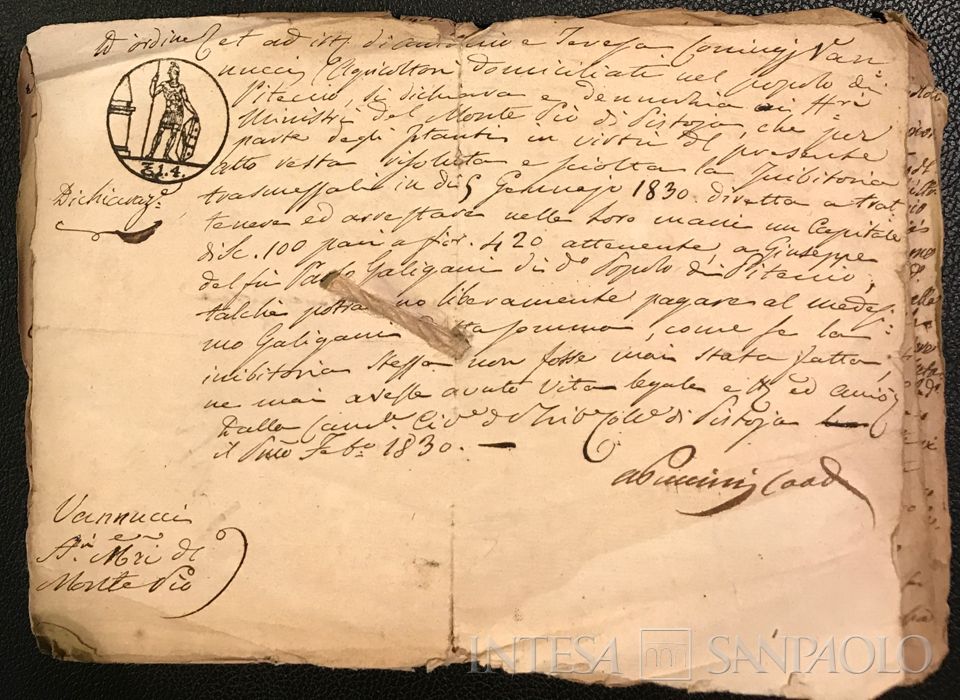 Ad ordine et ad ist. di Antonio e Teresa Coniugi Van-
nucci Agricoltori domiciliati nel popolo di
Piteccio, si dichiara e denunzia ai
Ministri del Monte Pio di Pistoja, che per
parte degli Istanti in virtù del presente
atto resta risoluta e sciolta la Inibitoria
trasmessali in dì 5 Gennajo 1830. diretta a trat-
tenere ed arrestare nelle loro mani un Capitale
di Sc. 100 pari a fior. 420 attenente a Giuseppe
del fù Galigani di do Popolo di Piteccio,
talchè potranno liberamente pagare al medesi-
mo Galigani detta somma, come se la
inibitoria stessa non fosse mai stata fatta,
ne mai avesse avuto vita legale e ed
Dalla Canc. Civ. del Trib. Coll. di Pistoja
il Pmo Febo 1830.
Σ.1.4.
Dichiaraz.e
Vannucci
e
Mri di
Monte Pio
INTESA SANPAOLO